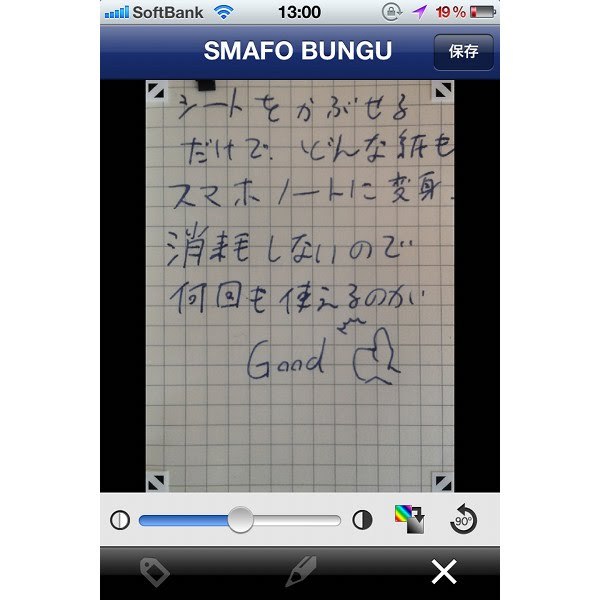 SoftBank 13:00 19%
SMAFO BUNGU 保存
シートをかぶせる
だけで、どんな紙も
スマホノートに変身.
消耗しないので
何回も使えるのがい
Good
90°